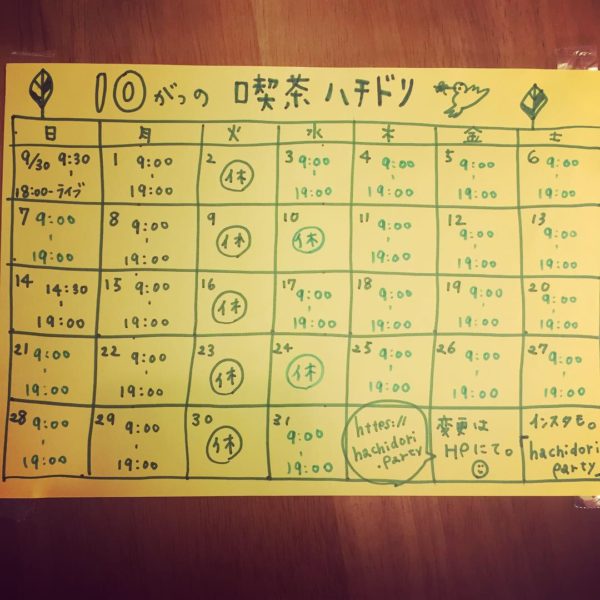 10がつの 喫茶 ハチドリ
日 月 火 水 木 金 土
9/30 9:30 - 18:00-ライブ
1 9:00 - 19:00
2 休
3 9:00 - 19:00
4 9:00 - 19:00
5 9:00 - 19:00
6 9:00 - 19:00
7 9:00 - 19:00
8 9:00 - 19:00
9 休
10 休
11 9:00 - 19:00
12 9:00 - 19:00
13 9:00 - 19:00
14 14:30 - 19:00
15 9:00 - 19:00
16 休
17 9:00 - 19:00
18 9:00 - 19:00
19 9:00 - 19:00
20 9:00 - 19:00
21 9:00 - 19:00
22 9:00 - 19:00
23 休
24 休
25 9:00 - 19:00
26 9:00 - 19:00
27 9:00 - 19:00
28 9:00 - 19:00
29 9:00 - 19:00
30 休
31 9:00 - 19:00
https://
hachidori
.party
変更は
HPにて。
インスタも。
hachidori
party_